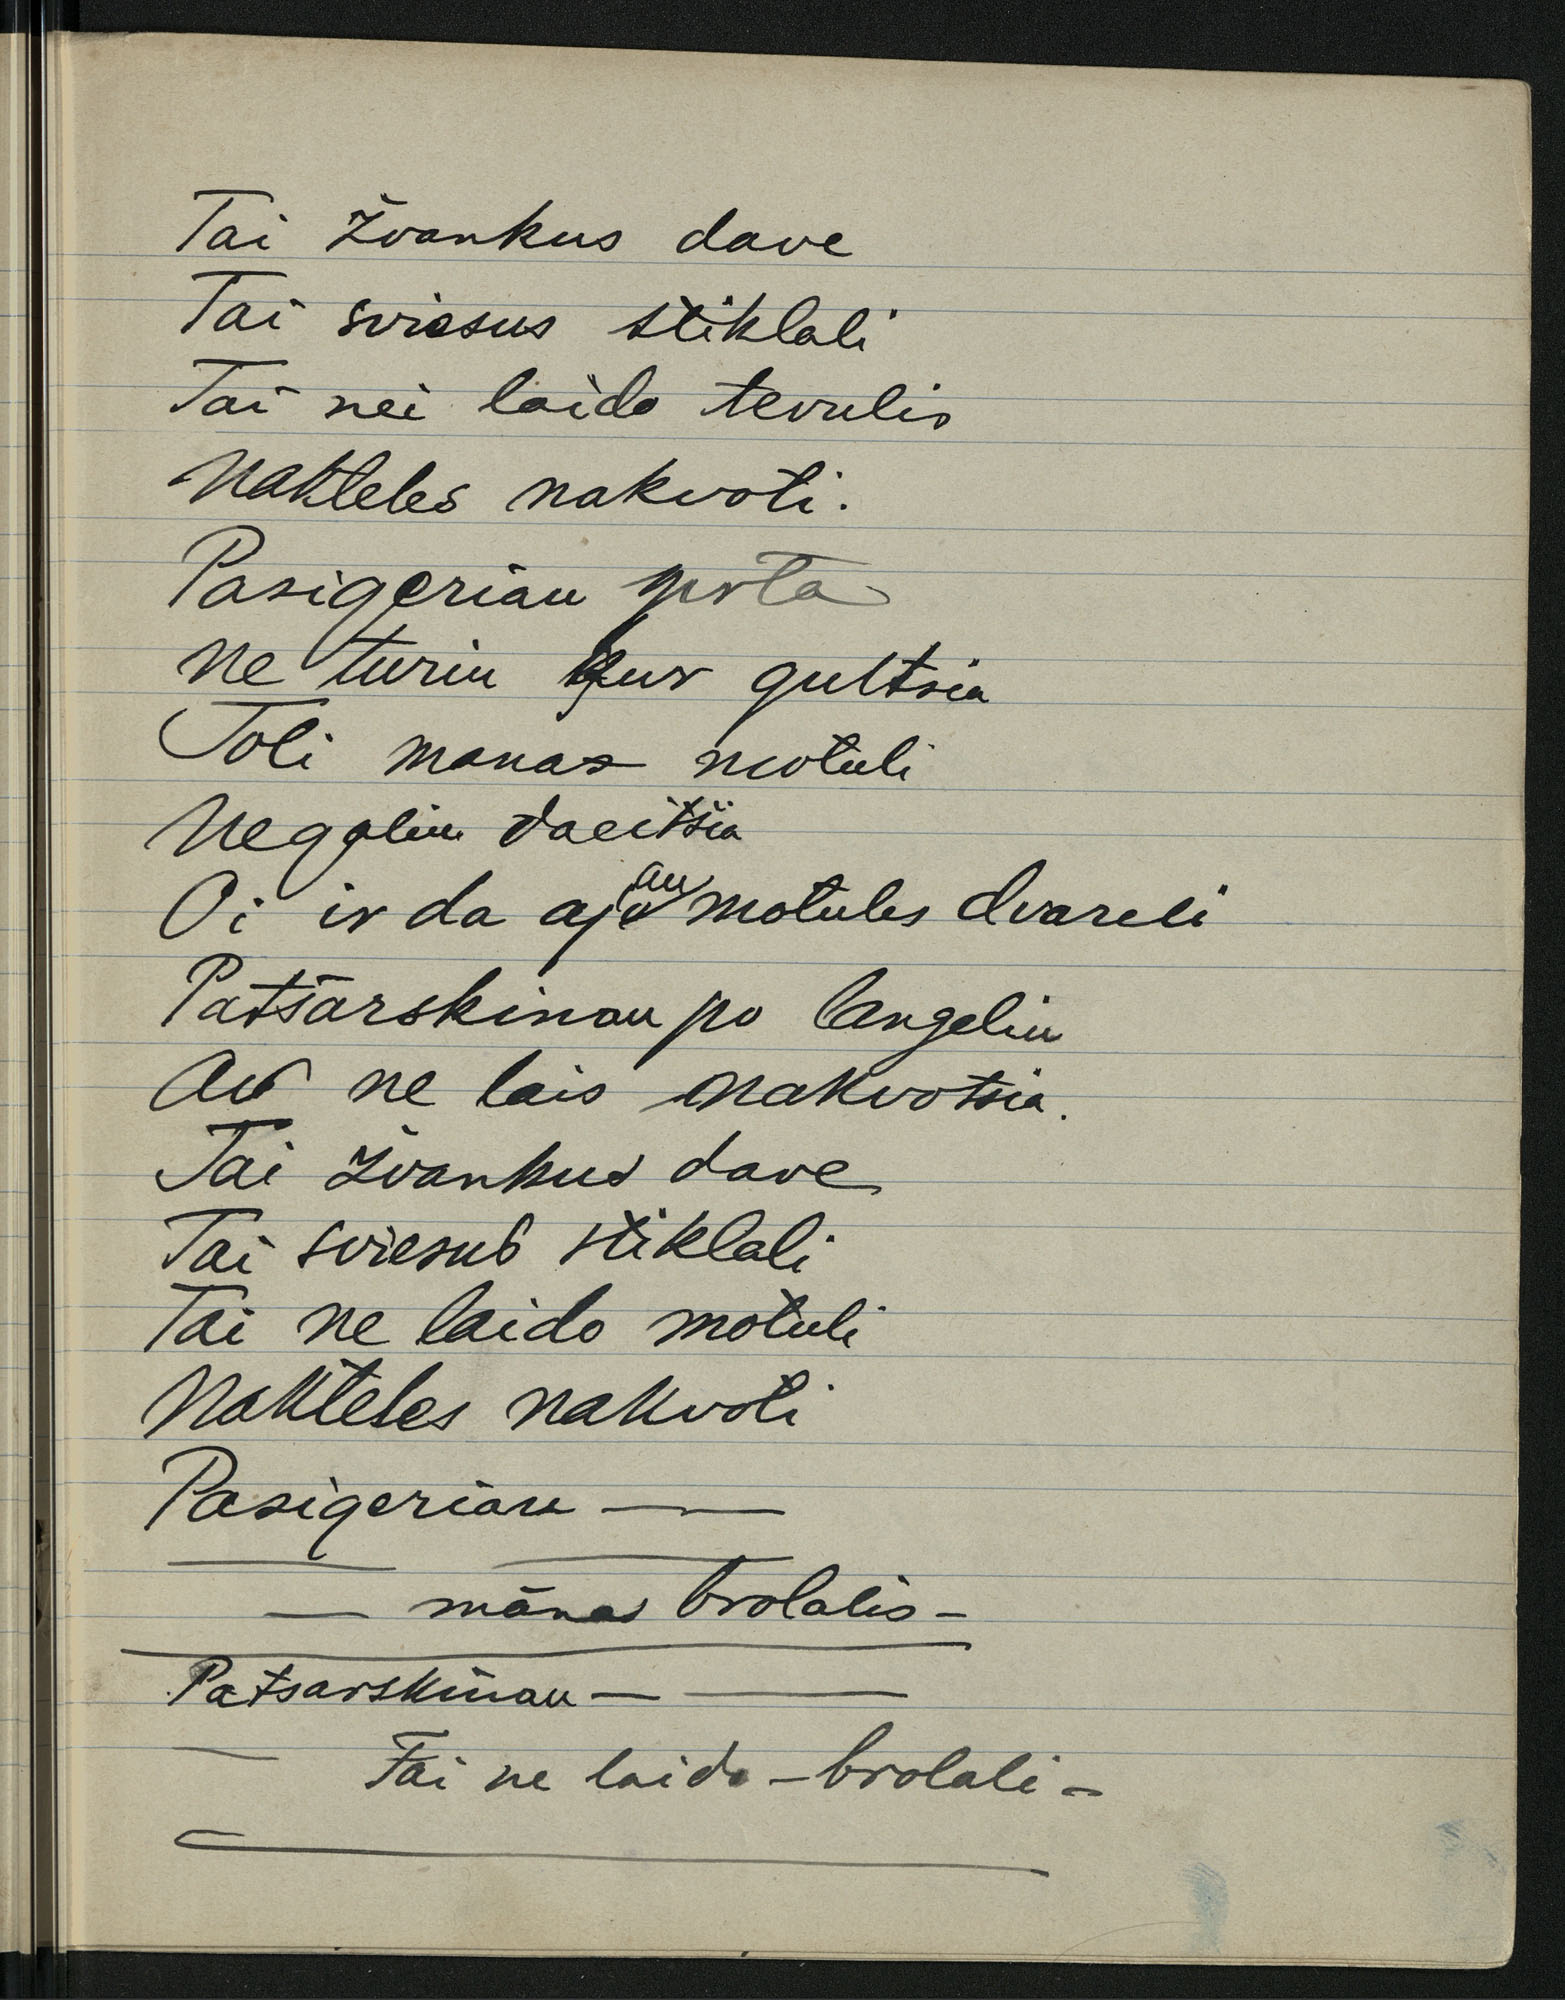 Tai žvankus dave
Tai sviesus stiklali
Tai nei laido tevulis
Nakteles nakvoti.
Pasigeriau prota
Ne turiu kur gultsia
Toli manas motuli
Negaliu daeitsia
Oi ir da ajau motules dvareli
Patsarskinau po langeliu
Au ne lais nakvotsia.
Tai žvankus dave
Tai sviesus stiklali
Tai ne laido motuli
Nakteles nakvoti
Pasigeriau —
— mānas brolalis –
Patsarskinau — —
— Tai ne laido – brolali –